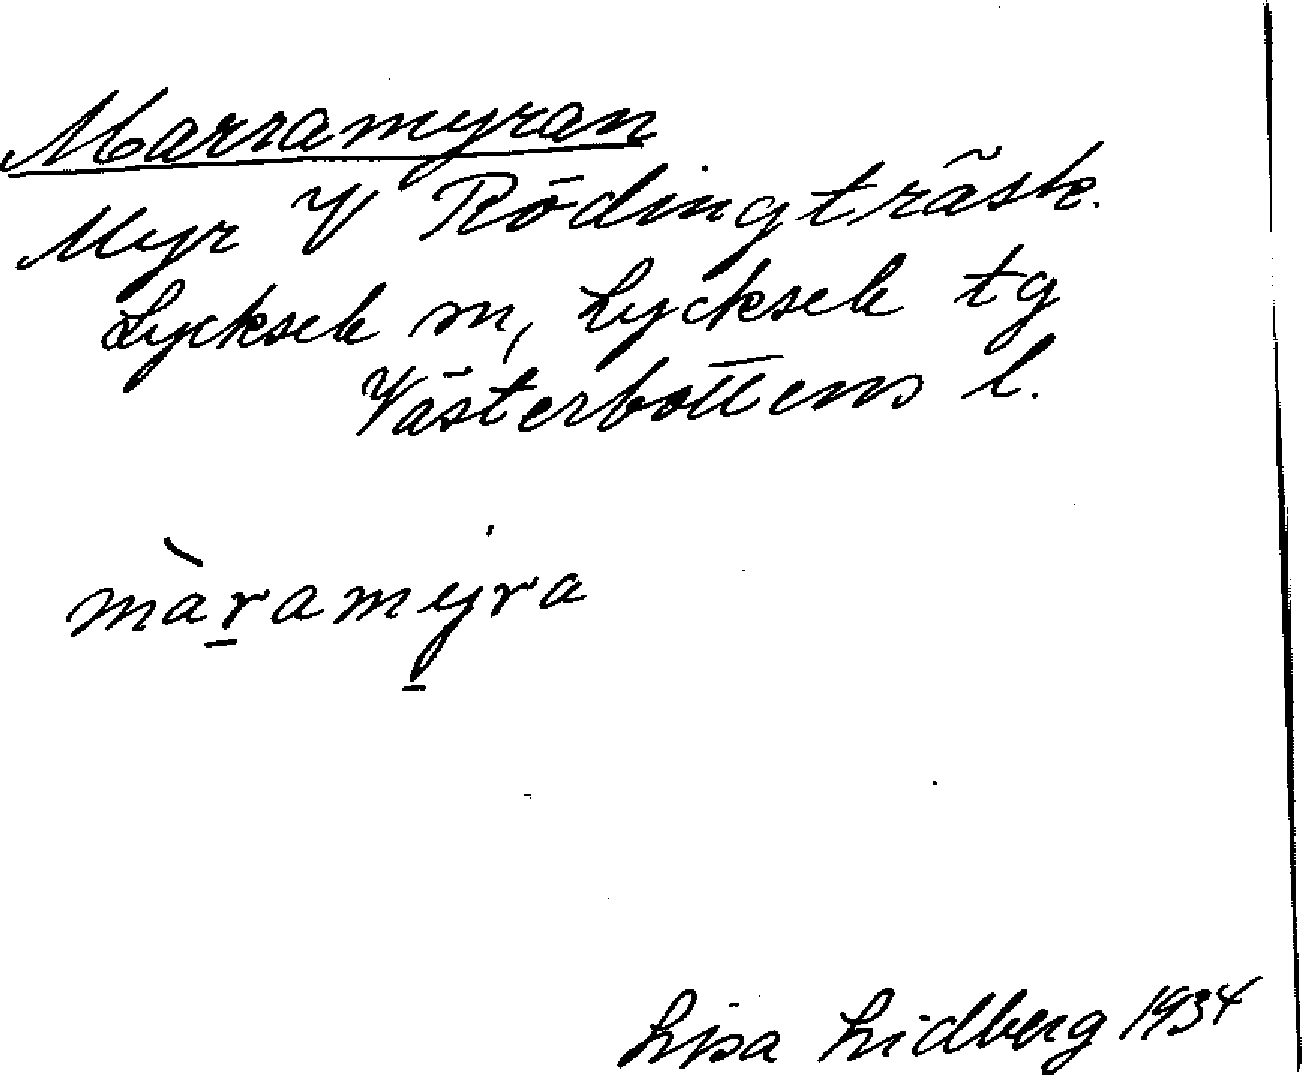 Marramyran
Myr V Rödingträsk.
Lycksele m, Lycksele tg
Västerbottens l.
màr̲amy̲ra
Lisa Lidberg 1934